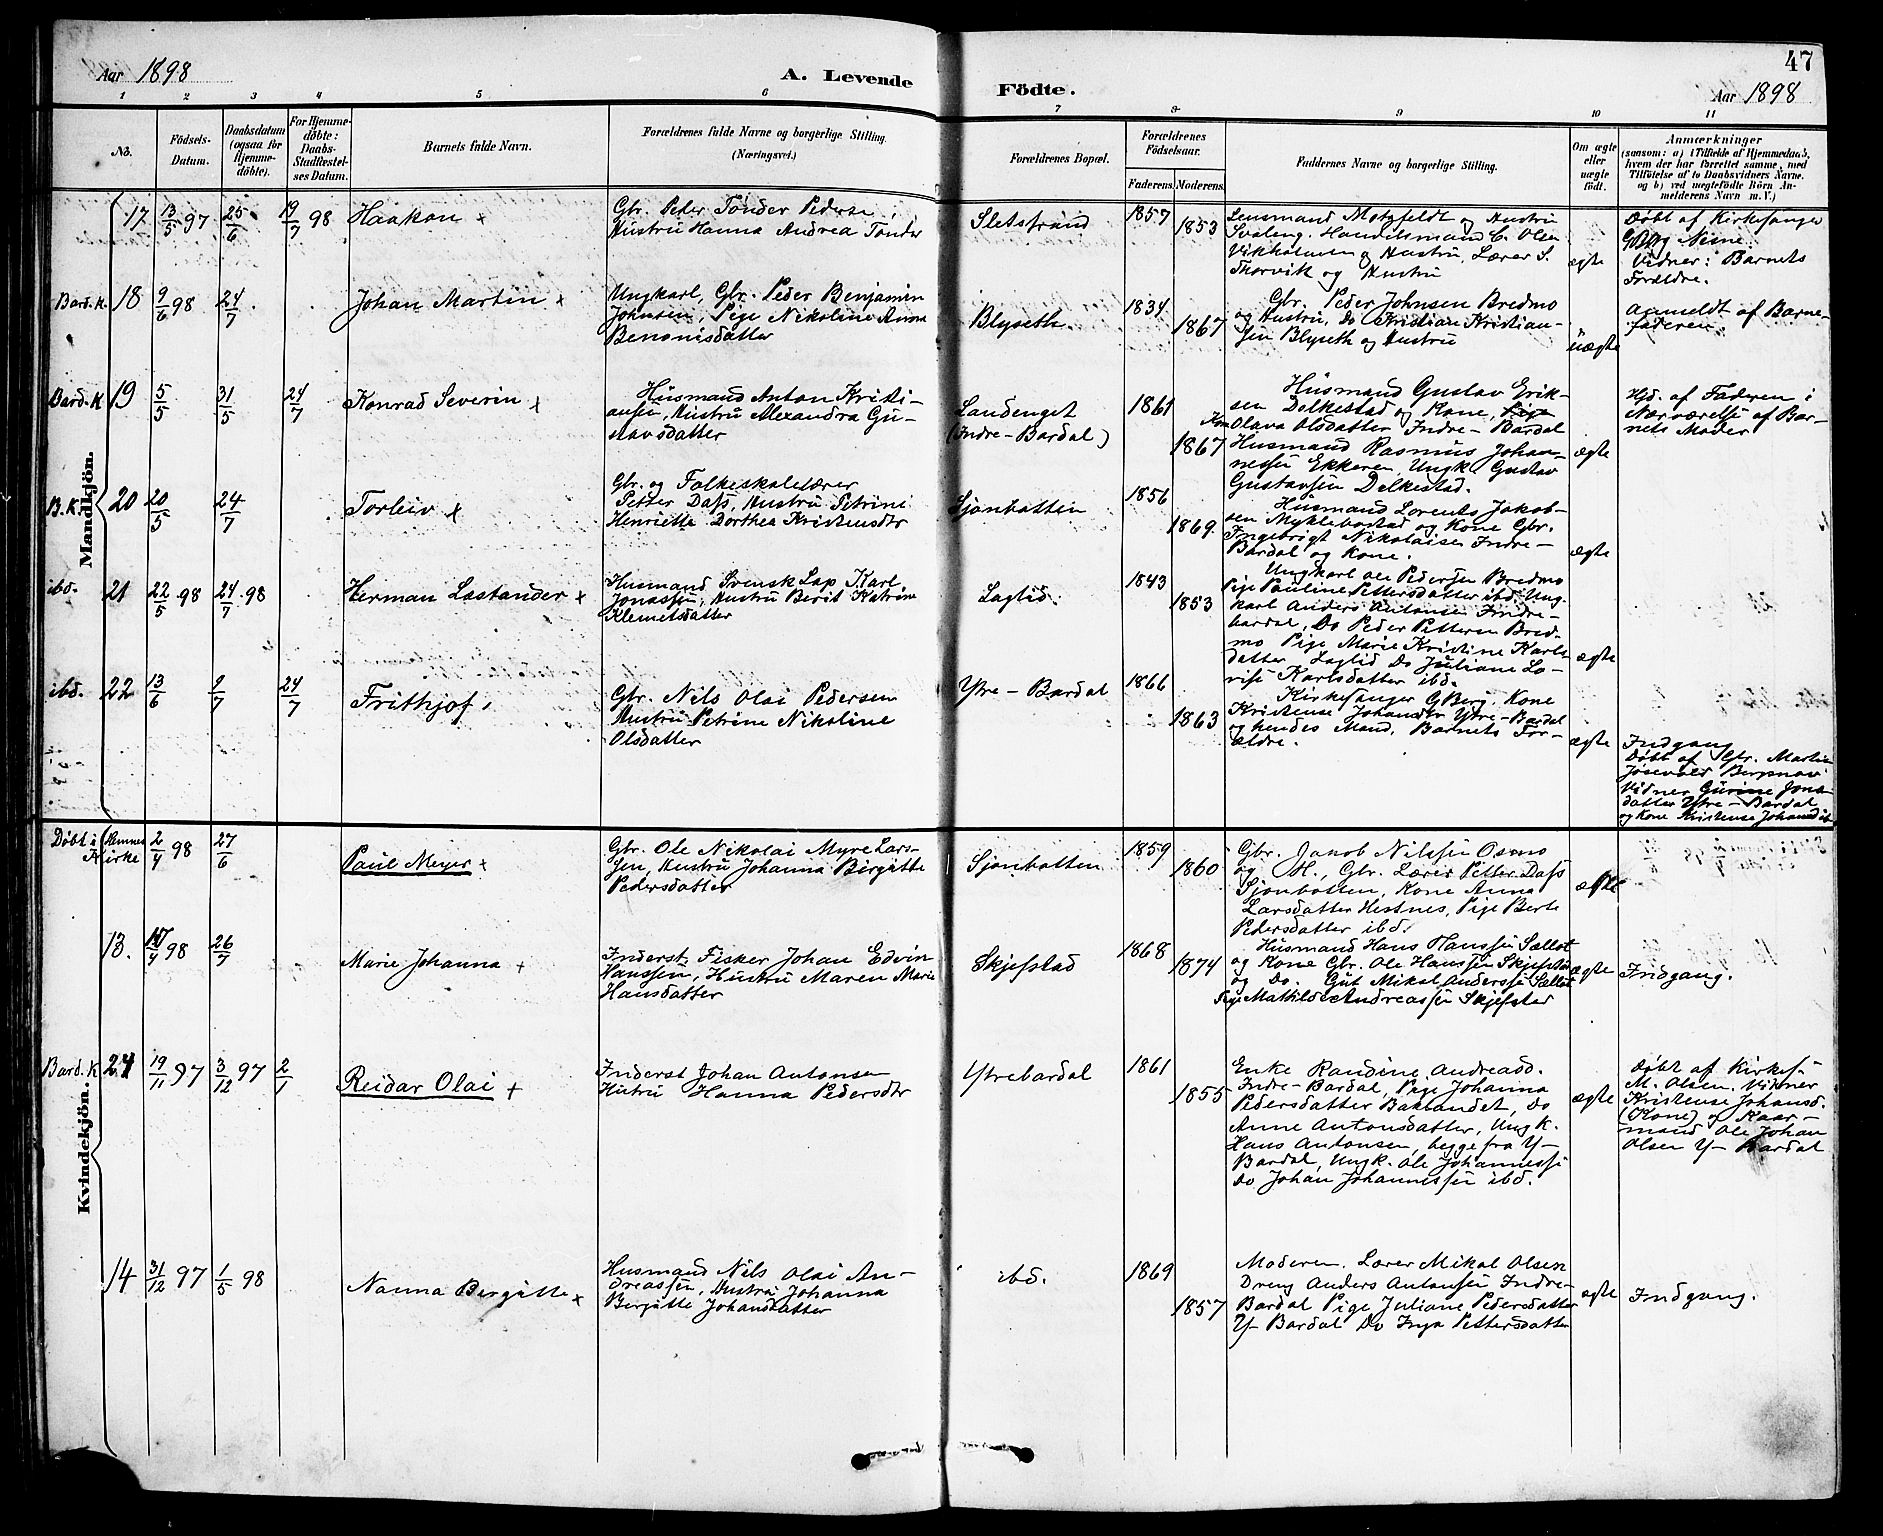 Aar 1898
A. Levende
Födte.
Aar 1898
47
1 2 3 4 5 6 7 8 9 10 11
No.
Födsels-
Datum.
Daabsdatum
(ogsaa for
Hjemme-
döbte).
For Hjemme-
döbte:
Daabs-
Stadfæstel-
ses Datum.
Barnets fulde Navn.
Forældrenes fulde Navne og borgerlige Stilling.
(Næringsvei.)
Forældrenes Bopæl.
Forældrenes
Födselsaar.
Faderens. Moderens.
Faddernes Navne og borgerlige Stilling.
Om ægte
eller
uægte
födt.
Anmærkninger
(saasom: a) i Tilfælde af Hjemmedaab,
hvem der har forrettet samme, med
Tilföielse af to Daabsvidners Navne.
og b) ved uægtefödte Börn An-
melderens Navn m. V.)
Mandkjön.
17 13/5 97 25/6 19/7 98
Haakon x
Gbr. Peder Tönder Pederse
Hustru Hanna Andrea Tönder
Sletstrand
1857
1853
Lensmand Motzfeldt og Hustru
Svaleng. Handelsmand C. Olsen
Vikholmen og Hustru, Lærer S.
Thorvik og Hustru
ægte
Døbt af Kirkesanger
GBerg Nesne.
Vidner: Barnets
Forældre.
Bard. K. 18 9/6 98 24/7
Johan Martin x
Ungkarl, Gbr. Peder Benjamin
Johnsen, Pige Nikoline Anna
Benonisdatter
Blyseth.
1834
1867
Gbr. Peder Johnsen Bredmo
og Hustru, Do Kristian Kristian-
sen Blyseth og Hustru
uægte
Anmeldt af Barne-
faderen.
Bard. K 19 5/5 31/5 24/7
Konrad Severin x
Husmand Anton Kristi-
ansen, Hustru Alexandra Gu-
stavsdatter
Landenget
(Indre-Bardal)
1861
1867
Husmand Gustav Erik-
sen Delkestad og Kone, Pige
Olava Olsdatter Indre-Bardal
Husmand Rasmus Johan-
nessen Ekkeren, Ungk Gustav
Gustavsen Delkestad.
ægte
Hjd. af Faderen i
Nærværelse af Bar-
nets Moder
B. K. 20 20/5 24/7
Torleiv x
Gbr. og Folkeskolelærer
Petter Dass, Hustru Petrine
Henriette Dorthea Kristensdtr
Sjonbotten
1856
1869.
Husmand Lorents Jakob-
sen Myklebostad og Kone Gbr.
Ingebrigt Nikolaisen Indre-
Bardal og Kone.
ægte
ibd. 21 22/5 98 24/7 98
Herman Lastander x
Husmand Svensk Lap Karl
Jonassen, Hustru Berit Katrine
Klemetsdatter
Laglid.
1843
1853
Ungkarl Ole Pedersen Bredmo
Pige Pauline Pettersdatter ibd. Ung-
karl Anders Antonsen Indre-
bardal, Do Peder Pettersen Bred-
mo Pige Marie Kristine Karls-
datter Laglid Do Juliane Lo-
vise Karlsdatter ibd.
ægte
ibd. 22 13/6 9/7 24/7
Frithjof
Gbr. Nils Olai Pedersen
Hustru Petrine Nikoline
Olsdatter
Ytre-Bardal
1866
1863
Kirkesanger GBerg. Kone
Kristense Johansdtr Ytre-Bardal
og hendes Mand, Barnets For-
ældre.
ægte
Indgang
Døbt af Gbr. Martin
Vidner Gurine Jons-
datter Ytre-Bardal
og Kone Kristense Johansdtr ibd
Kvindekjön.
Døbt i Hemnes
Kirke
2/4 98 27/6
Paul Meyer x
Gbr. Ole Nikolai Myre Lars-
sen, Hustru Johanna Birgitte
Pedersdatter
Sjonbotten
1859
1860
Gbr. Jakob Nilsen Osmo
og H., Gbr. Lærer Petter Dass
Sjonbotten, Kone Anna
Larsdatter Hestnes, Pige Berte
Pedersdatter ibd.
ægte
13. 98 26/7
Marie Johanna x
Inderst Fisker Johan Edvin
Hanssen, Hustru Maren Marie
Hansdatter
Skjefstad
1868
1874
Husmand Hans Hanssen
og Kone Gbr. Ole Hanssen Skjefstad
og Do. Gut Mikal Anderssen
Pige Mathilde Andreassen Skjefstad
ægte
Indgang.
Bard. K 24 19/11 97 3/12 97 2/1
Reidar Olai x
Inderst Johan Antonsen
Hutru Hanna Pedersdtr
Ytrebardal
1861
1855
Enke Randine Andreasd.
Indre-Bardal, Pige Johanna
Pedersdatter Baklandet, Do
Anne Antonsdatter, Ungk.
Hans Antonsen, begge fra Y-
Bardal, Ungk. Ole Johannessen
Do Johan Johannessen ibd.
ægte
Døbt af Kirkes.
M. Olsen. Vidner
Kristense Johansd.
(Kone) og Kaar-
mand Ole Johan
Olsen Y-Bardal
14 31/12 97 1/5 98
Nanna Bergitte x
Husmand Nils Olai An-
dreassen, Hustru Johanna
Bergitte Johansdatter
ibd.
1869
1857
Moderen. Lærer Mikal Olsen
Dreng Anders Antonsen Indre-
Bardal Pige Juliane Pedersdatter
Y-Bardal Do Inga Pettersdatter
ægte
Indgang.